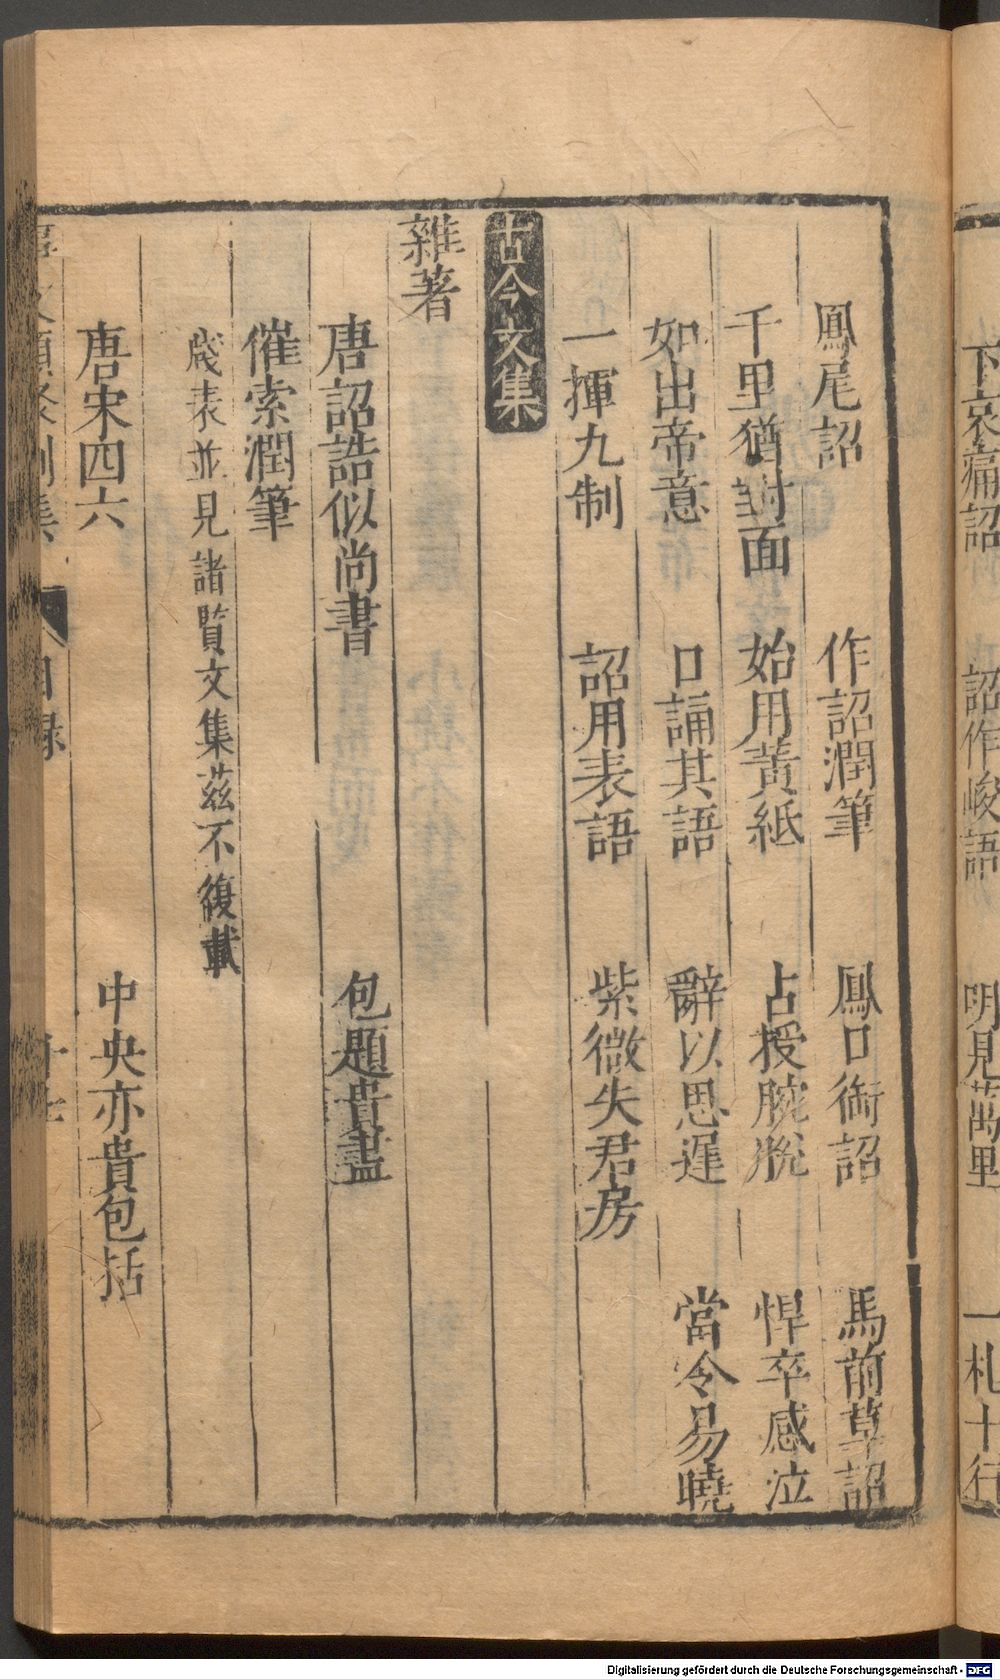 下哀痛詔　詔作峻語　明見萬里　一札十行
鳳尾詔　作詔潤筆　鳳口銜詔　馬前草詔
千里猶對面　始用黃紙　占授腕脫　悍卒感泣
如出帝意　口誦其語　辭以思遲　當令易曉
一揮九制　詔用表語　紫微失君房
古今文集
雜著
唐詔誥似尚書　包題貴盡
催索潤筆
牋表並見諸覽文集茲不復載
唐宋四六　中央亦貴包括
文類聚別集　目録　十七
Digitalisierung gefördert durch die Deutsche Forschungsgemeinschaft - DFG